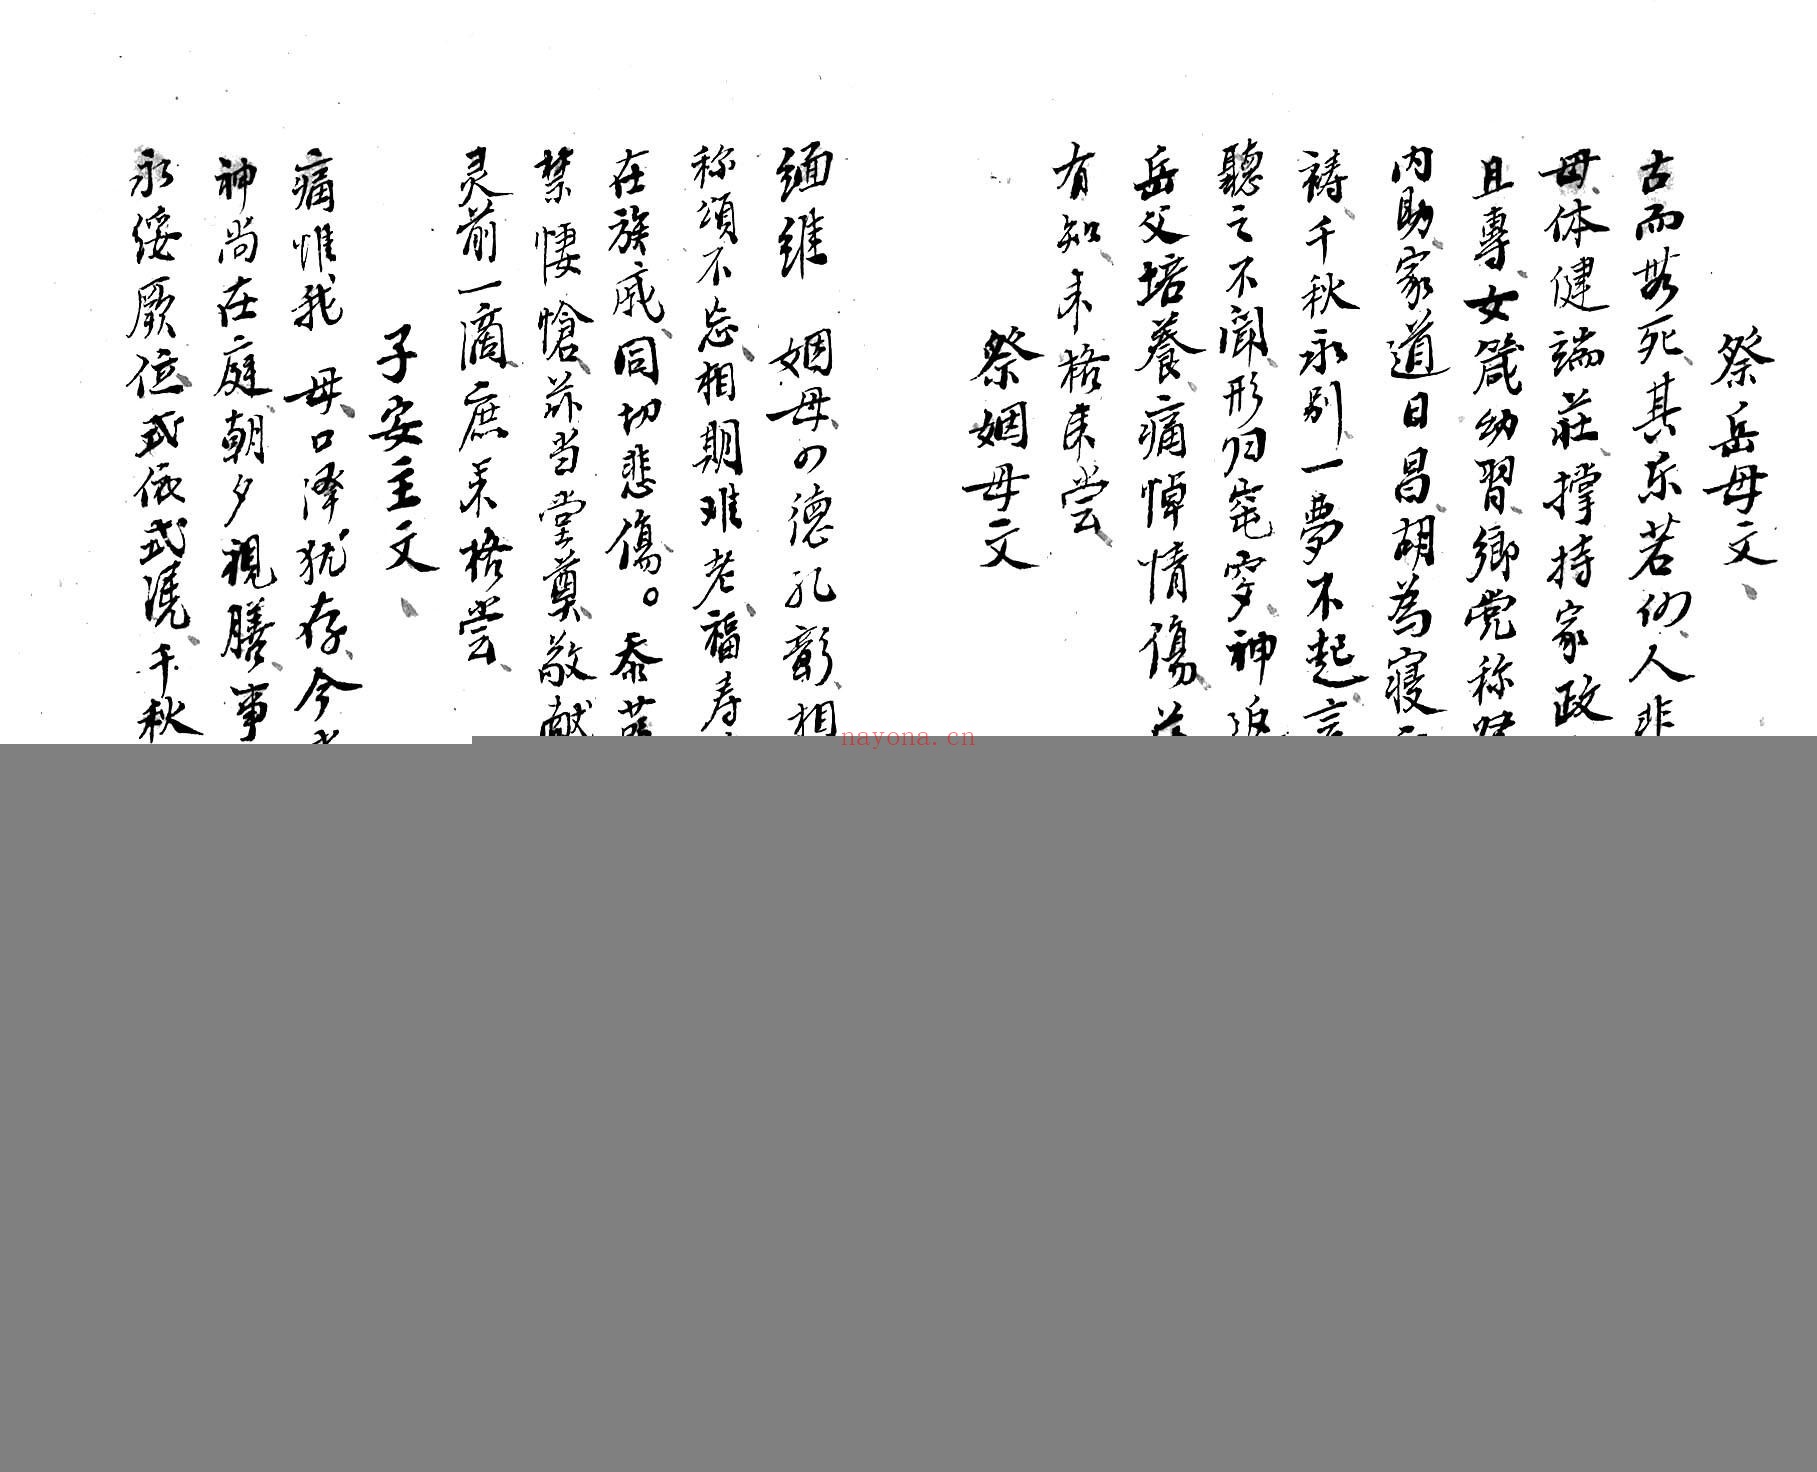 祭岳母文、
古而無死、其乐若何、人非
母、体健端莊、撑持家政
且專、女箴幼習、鄉党称
内助、家道日昌、胡為寝
祷、千秋永别、一夢不起、言
聽之不闻、形归窀穸、神返
岳父培養、痛悼情傷、
有知、来格来尝
祭姻母文
缅维 姻母の德孔彰、相
称頌不忘、相期难老、福寿
在族戚、同切悲傷。忝
禁悽愴、兹当堂奠、敬献
灵前一滴、庶来格尝、
子安主文、
痛惟我 母、口泽犹存、今
神尚在庭、朝夕視膳、事
永绥厥位、式依式凭、千秋
nayona.cn